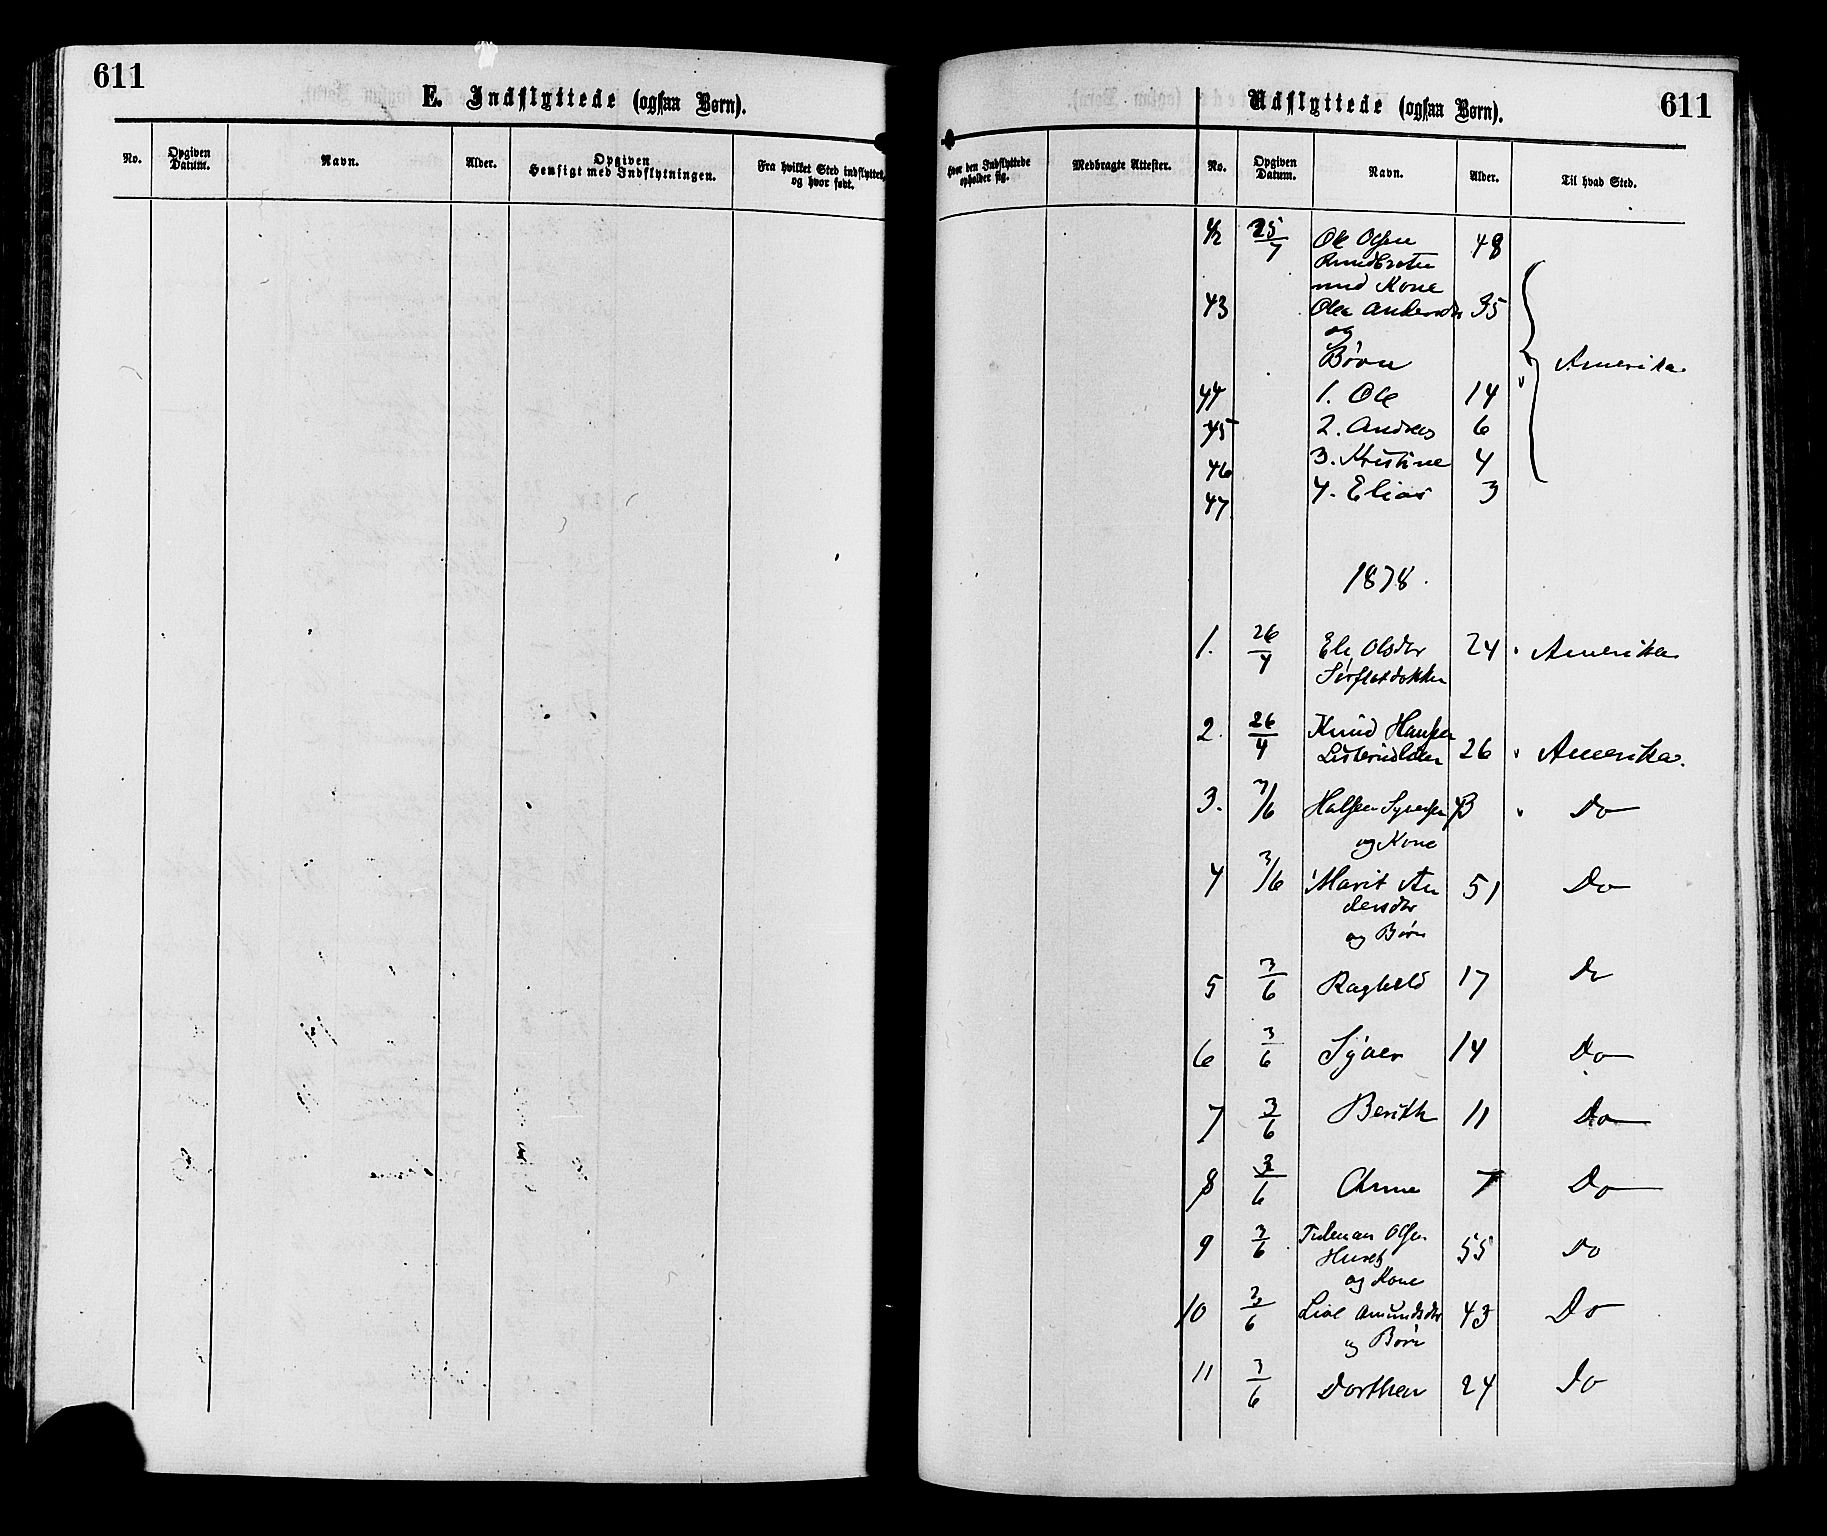 611
E. Indflyttede (ogsaa Børn).
No.
Opgiven Datum.
Navn.
Alder.
Opgiven Hensigt med Indflytningen.
Fra hvilket Sted indflyttet, og hvor født.
Udflyttede (ogsaa Børn).
611
Hvor den Indflyttede opholder sig.
Medbragte Attester.
No.
Opgiven Datum.
Navn.
Alder.
Til hvad Sted.
42 25/7 Ole Olsen 48
med Kone
43 Olea Andersdtr 35
og
Børn Amerika
44 1. Ole 14
45 2. Andreas 6
46 3. Kristine 4
47 4. Elias 3
1878.
1. 26/4 Eli Olsdtr 24 Amerika
2. 26/4 Knud Hansen
26 Amerika.
3. 3/6 43 Do
og Kone
4 3/6 Marit An 51 Do
dersdtr
og Børn
5 3/6 Raghild 17 Do
6 3/6 Syver 14 Do
7 3/6 Berith 11 Do
8 3/6 Arne 7 Do
9 3/6 Tideman Olsen 55 Do
og Kone
10 3/6 Live Amundsdtr 43 Do
og Børn
11 3/6 Dorthea 24 Do